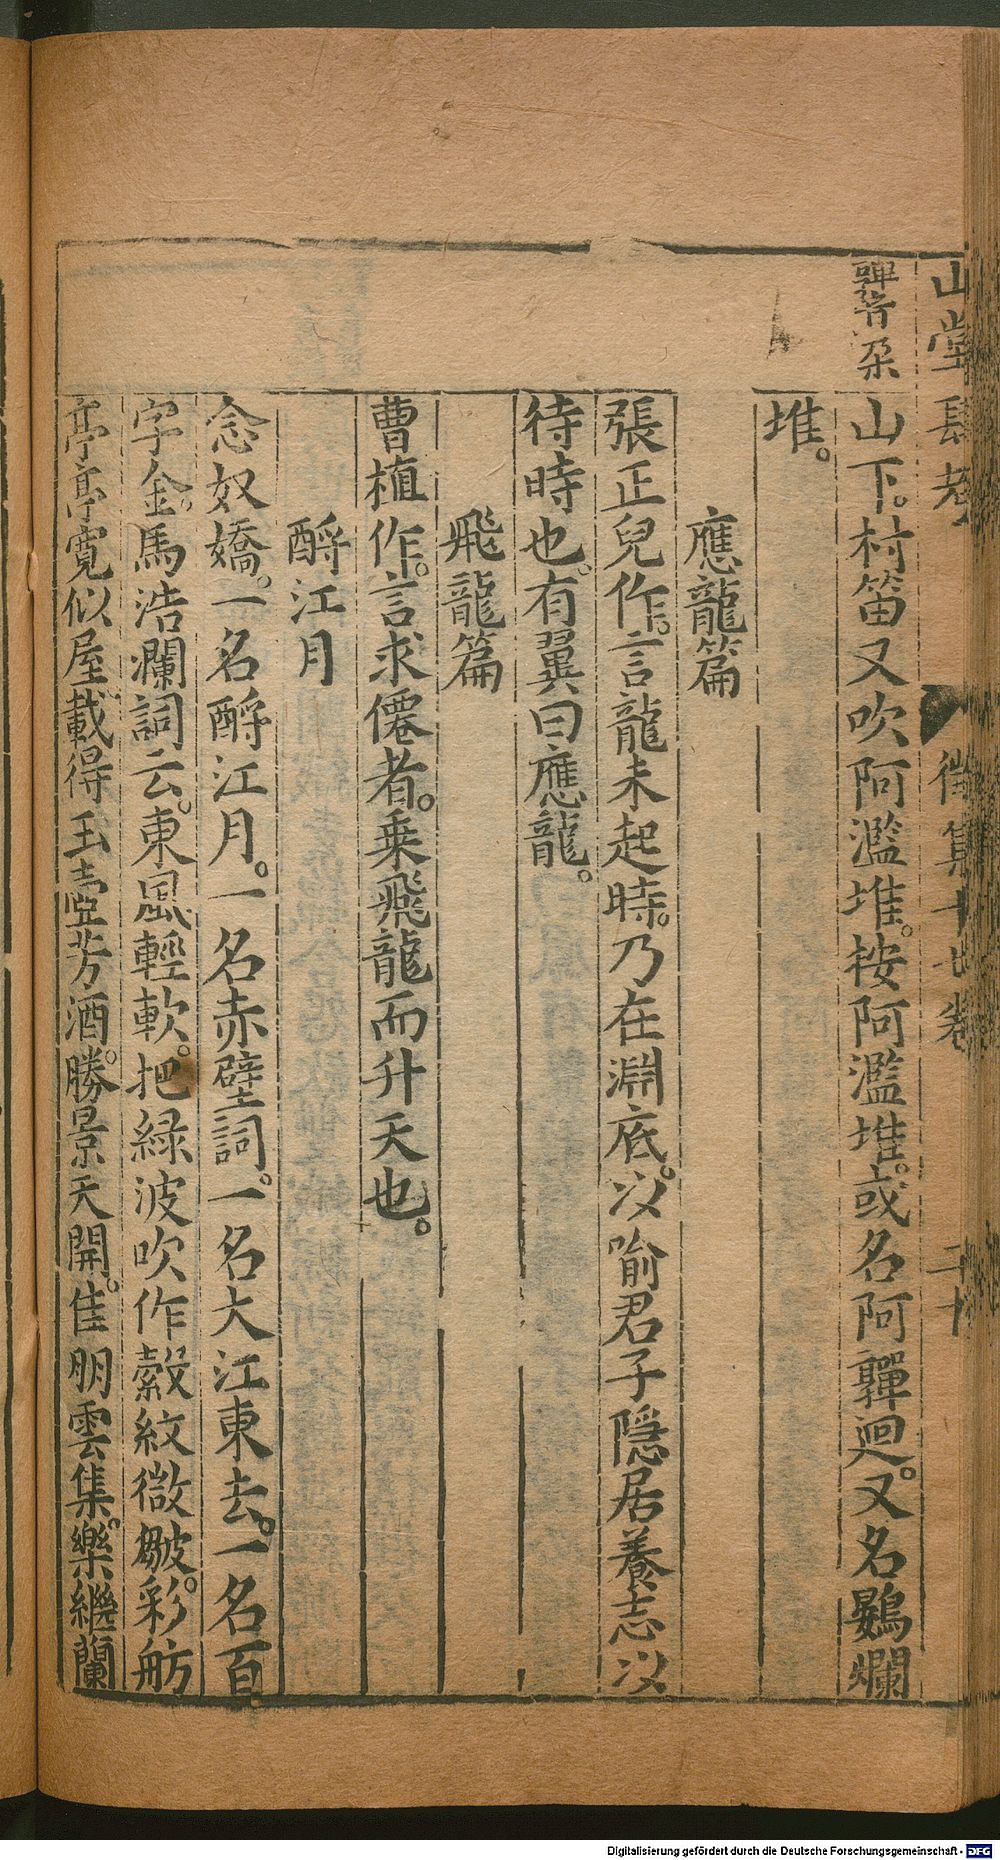 山堂肆考 徵集十七卷 二十
嚲音朶
山下。村笛又吹阿濫堆。按阿濫堆。或名阿嚲迴。又名鷃爛
堆。
應龍篇
張正見作。言龍未起時。乃在淵底。以喻君子隱居養志以
待時也。有翼曰應龍。
飛龍篇
曹植作。言求僊者。乗飛龍而升天也。
酹江月
念奴嬌。一名酹江月。一名赤壁詞。一名大江東去。一名百
字金。馬浩瀾詞云。東風輕軟。把緑波吹作縠紋微皺。彩舫
亭亭寛似屋載得玉壺芳酒。勝景天開。佳朋雲集。樂繼蘭
Digitalisierung gefördert durch die Deutsche Forschungsgemeinschaft - DFG